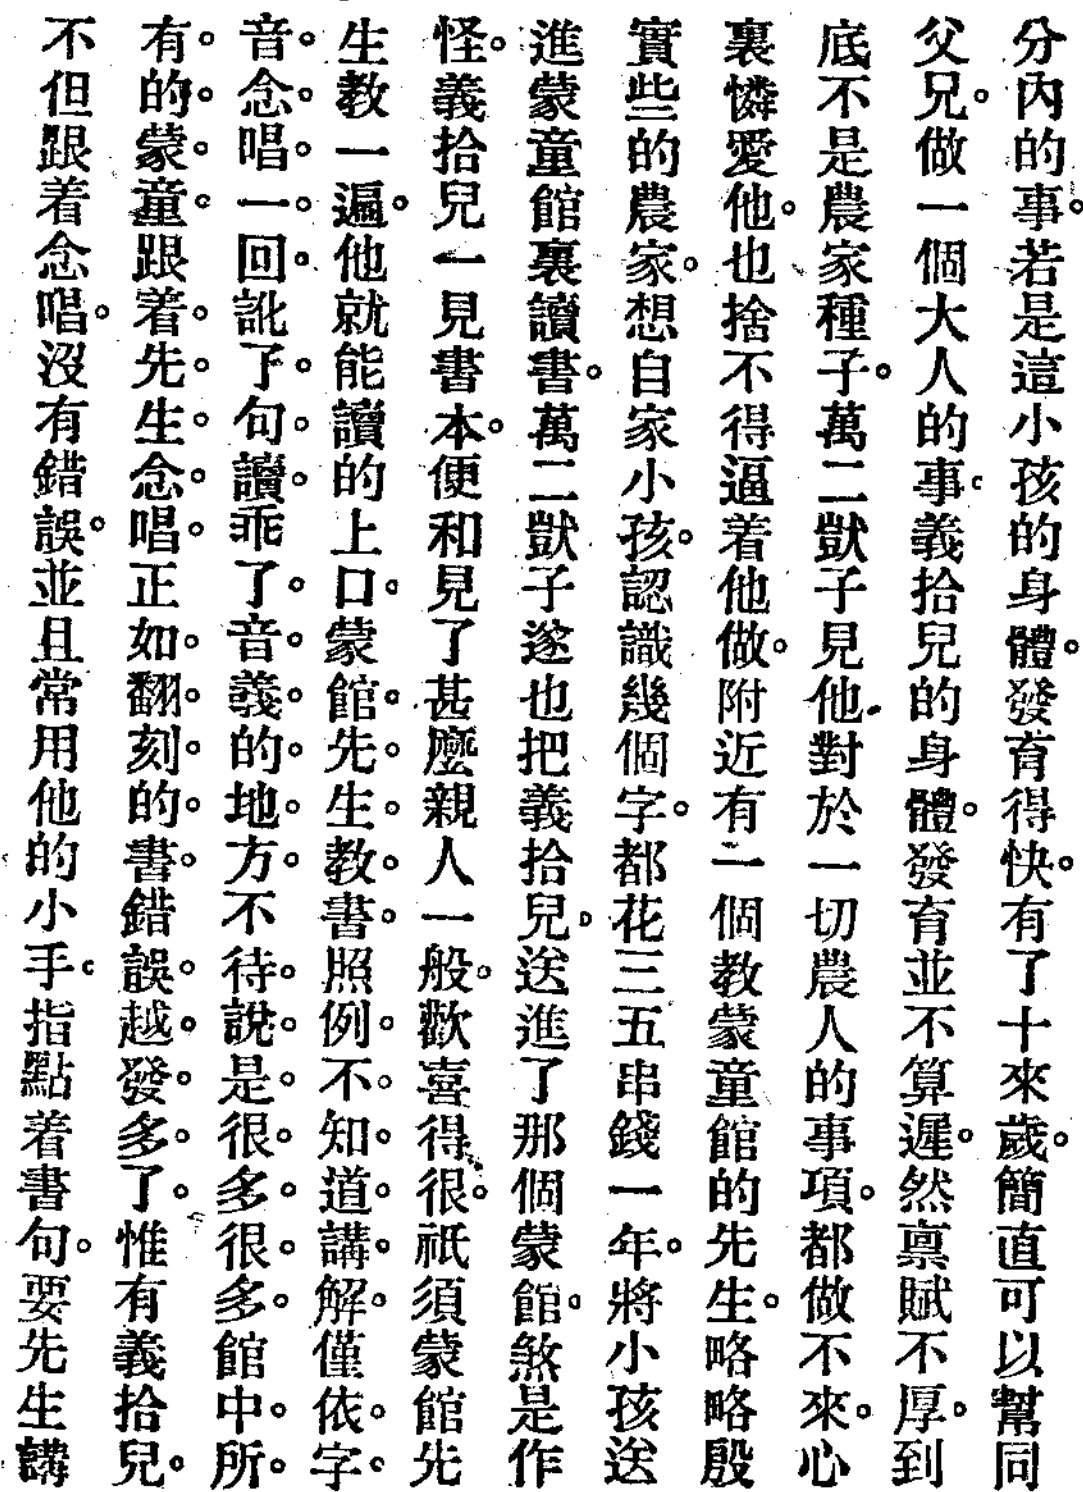 分內的事。若是這小孩的身體。發育得快。有了十來歲。簡直可以幫同
父兄。做一個大人的事。義拾兒的身體。發育並不算遲。然禀賦不厚。到
底不是農家種子。萬二獃子見他。對於一切農人的事項。都做不來。心
裏憐愛他。也捨不得逼着他做。附近有一個教蒙童館的先生。略略殷
實些的農家。想自家小孩。認識幾個字。都花三五串錢一年。將小孩送
進蒙童館裏讀書。萬二獃子遂也把義拾兒。送進了那個蒙館。煞是作
怪。義拾兒一見書本。便和見了甚麼親人一般。歡喜得很。祇須蒙館先
生教一遍。他就能讀的上口。蒙館。先。生。教。書。照例。不。知。道。講。解。僅依。字。
音。念。唱。一。回。訛了。句。讀。乖了。音。義。的。地。方。不待。說。是。很。多。很。多。館中。所。
有。的。蒙。童。跟着。先。生。念。唱。正如。翻。刻。的。書。錯誤。越。發。多。了。惟有義拾兒。
不但跟着念唱。沒有錯誤。並且常用他的小手。指點着書句。要先生講